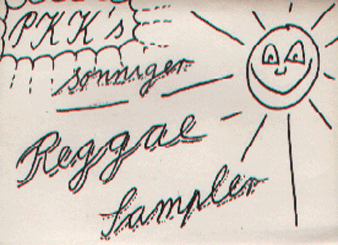 PKK's
sonniger
Reggae
Sampler